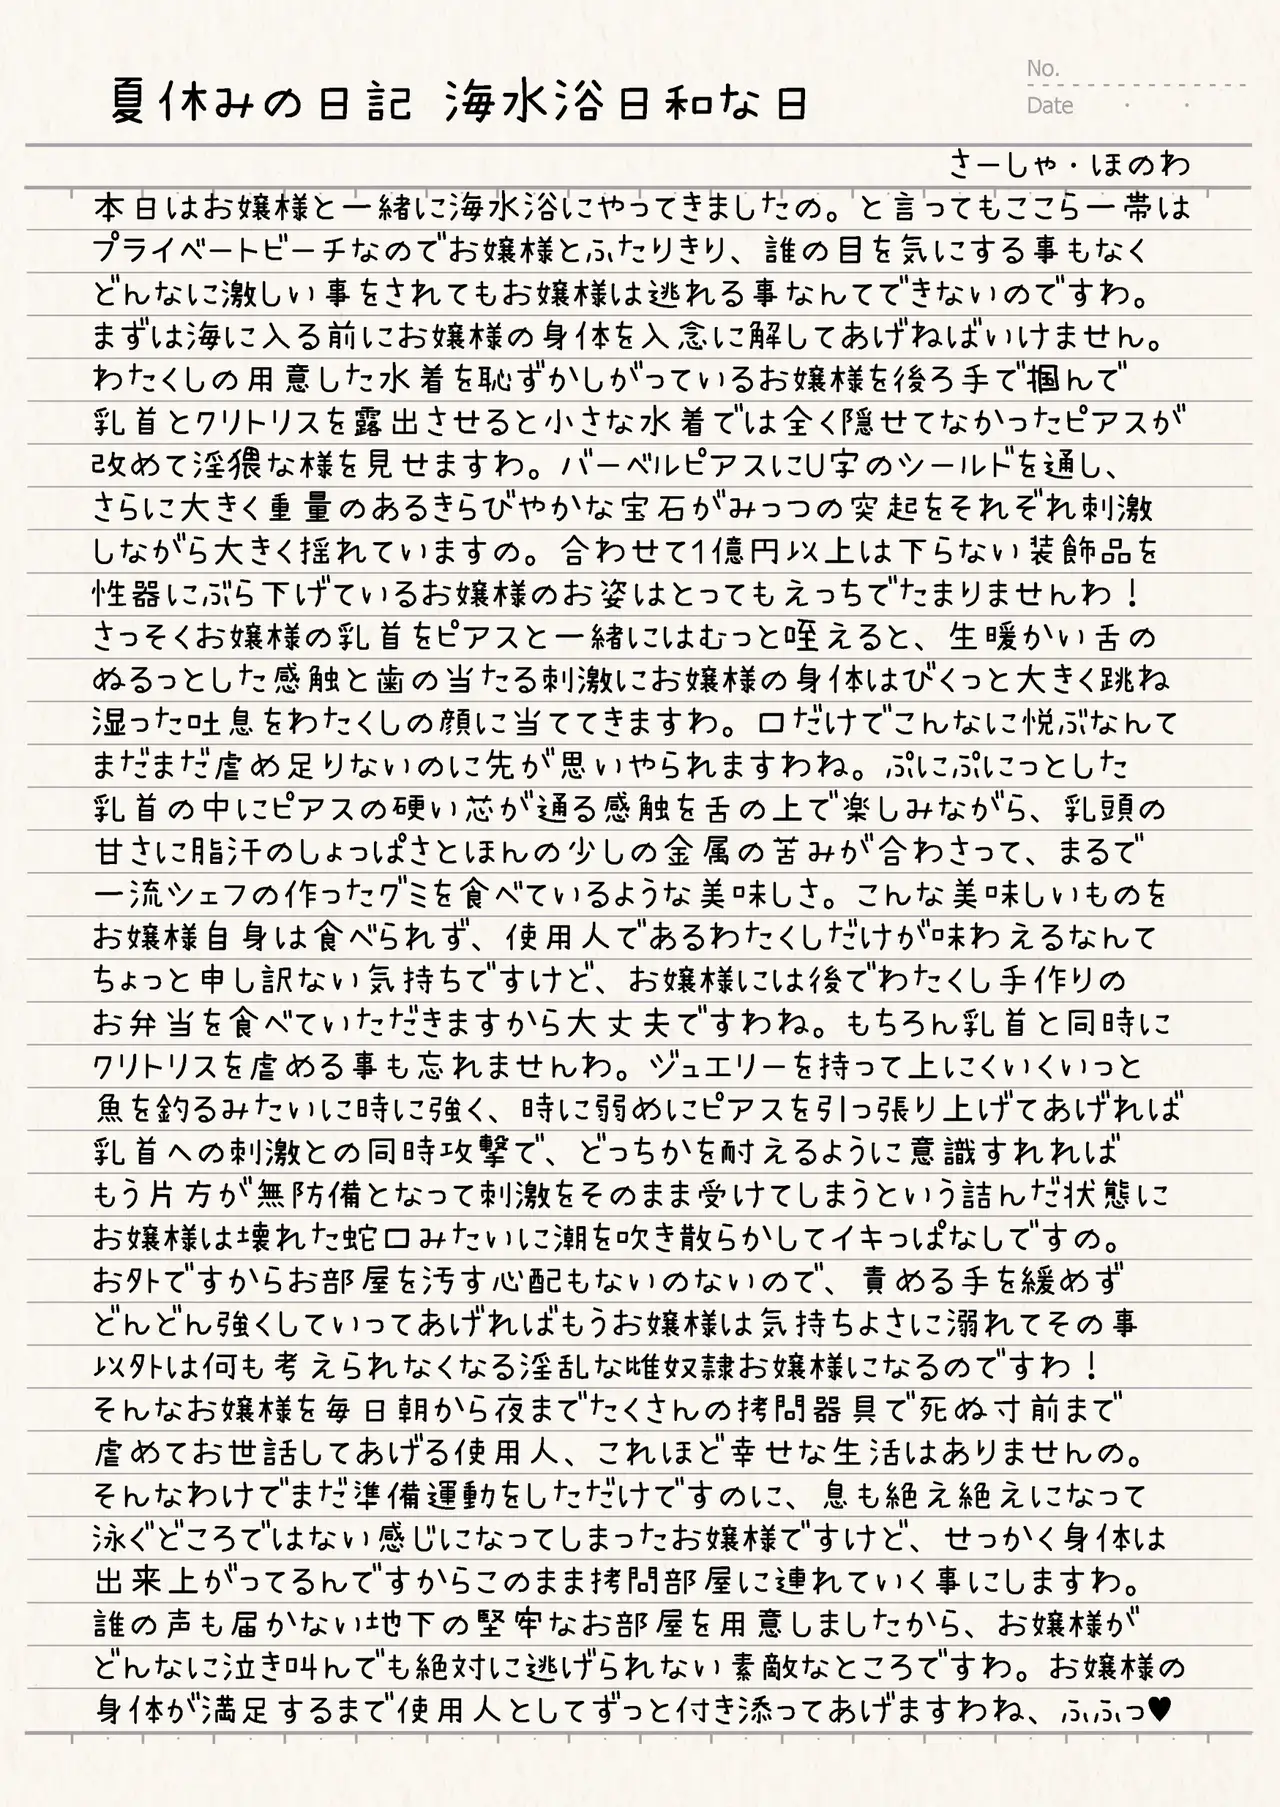 No.
Date ・ ・
夏休みの日記 海水浴日和な日
さーしゃ・ほのわ
本日はお嬢様と一緒に海水浴にやってきましたの。と言ってもここら一帯は
プライベートビーチなのでお嬢様とふたりきり、誰の目を気にする事もなく
どんなに激しい事をされてもお嬢様は逃れる事なんてできないのですわ。
まずは海に入る前にお嬢様の身体を入念に解してあげねばいけません。
わたくしの用意した水着を恥ずかしがっているお嬢様を後ろ手で掴んで
乳首とクリトリスを露出させると小さな水着では全く隠せてなかったピアスが
改めて淫猥な様を見せますわ。バーベルピアスにU字のシールドを通し、
さらに大きく重量のあるきらびやかな宝石がみっつの突起をそれぞれ刺激
しながら大きく揺れていますの。合わせて1億円以上は下らない装飾品を
性器にぶら下げているお嬢様のお姿はとってもえっちでたまりませんわ！
さっそくお嬢様の乳首をピアスと一緒にはむっと咥えると、生暖かい舌の
ぬるっとした感触と歯の当たる刺激にお嬢様の身体はびくっと大きく跳ね
湿った吐息をわたくしの顔に当ててきますわ。口だけでこんなに悦ぶなんて
まだまだ虐め足りないのに先が思いやられますわね。ぷにぷにっとした
乳首の中にピアスの硬い芯が通る感触を舌の上で楽しみながら、乳頭の
甘さに脂汗のしょっぱさとほんの少しの金属の苦みが合わさって、まるで
一流シェフの作ったグミを食べているような美味しさ。こんな美味しいものを
お嬢様自身は食べられず、使用人であるわたくしだけが味わえるなんて
ちょっと申し訳ない気持ちですけど、お嬢様には後でわたくし手作りの
お弁当を食べていただきますから大丈夫ですわね。もちろん乳首と同時に
クリトリスを虐める事も忘れませんわ。ジュエリーを持って上にくいくいっと
魚を釣るみたいに時に強く、時に弱めにピアスを引っ張り上げてあげれば
乳首への刺激との同時攻撃で、どっちかを耐えるように意識すれば
もう片方が無防備となって刺激をそのまま受けてしまうという詰んだ状態に
お嬢様は壊れた蛇口みたいに潮を吹き散らかしてイキっぱなしですの。
お外ですからお部屋を汚す心配もないのないので、責める手を緩めず
どんどん強くしていってあげればもうお嬢様は気持ちよさに溺れてその事
以外は何も考えられなくなる淫乱な雌奴隷お嬢様になるのですわ！
そんなお嬢様を毎日朝から夜までたくさんの拷問器具で死ぬ寸前まで
虐めてお世話してあげる使用人、これほど幸せな生活はありませんの。
そんなわけでまだ準備運動をしただけですのに、息も絶え絶えになって
泳ぐどころではない感じになってしまったお嬢様ですけど、せっかく身体は
出来上がってるんですからこのまま拷問部屋に連れていく事にしますわ。
誰の声も届かない地下の堅牢なお部屋を用意しましたから、お嬢様が
どんなに泣き叫んでも絶対に逃げられない素敵なところですわ。お嬢様の
身体が満足するまで使用人としてずっと付き添ってあげますわね、ふふっ♥